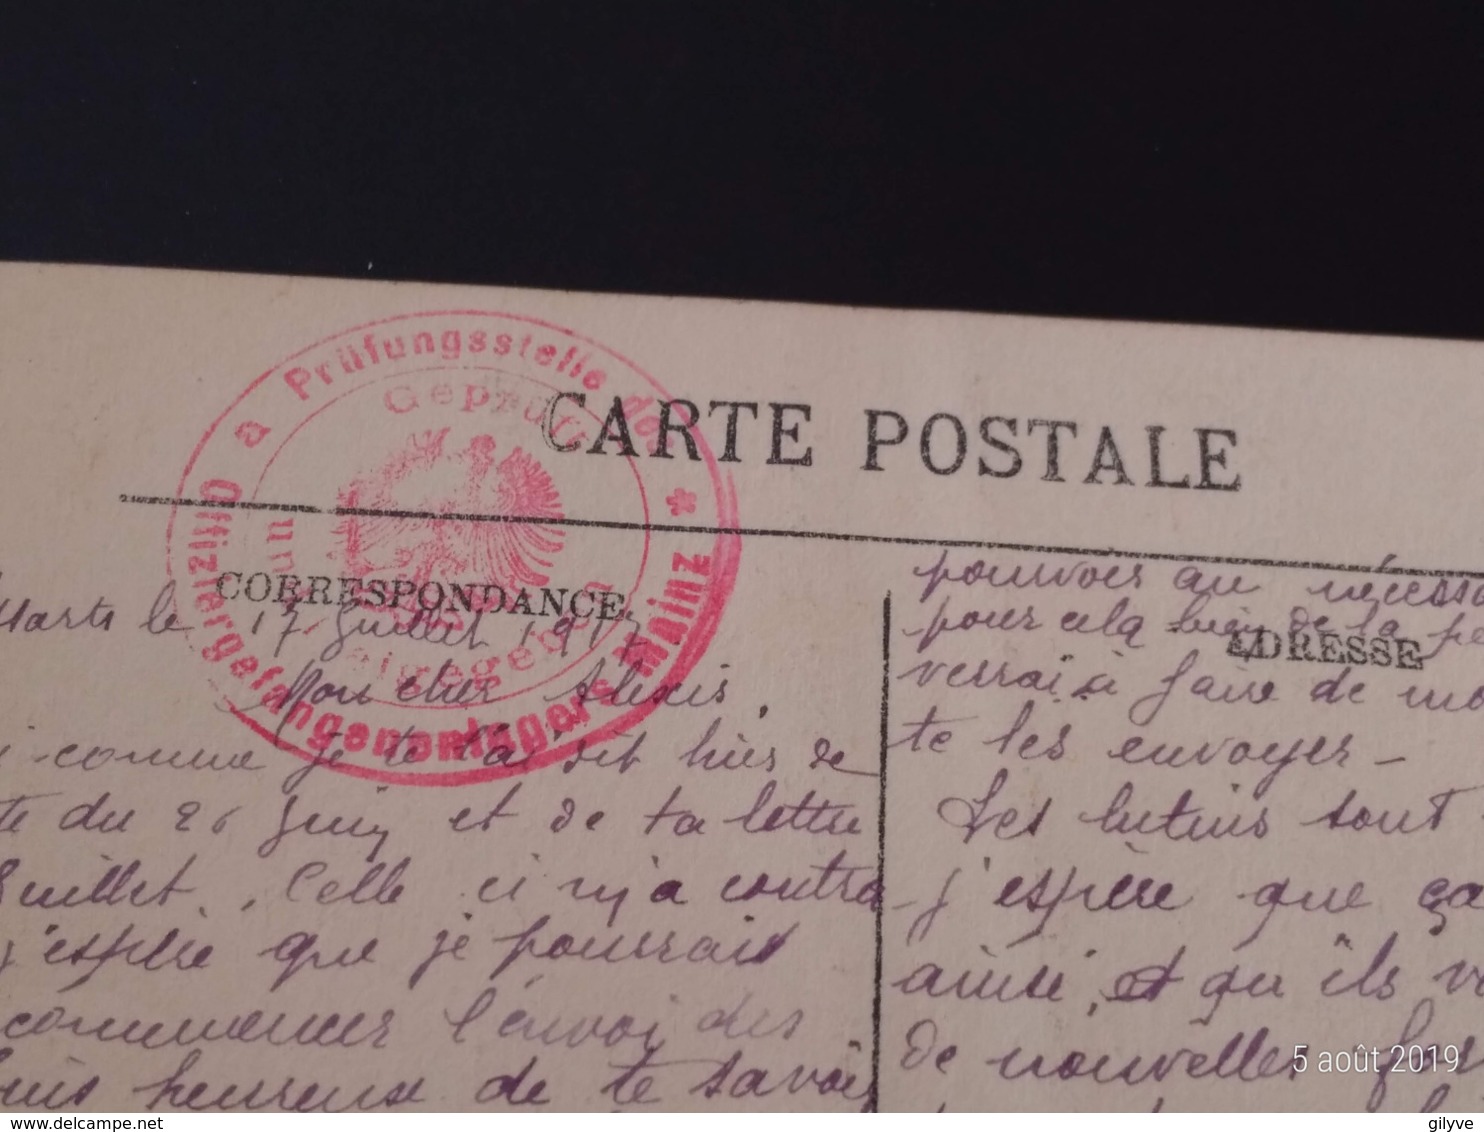 a Prüfungsstelle des * Offiziergefangenenlagers Mainz
Geprüft und freigegeben
CARTE POSTALE
CORRESPONDANCE
ADRESSE
le 17 Juillet 1917
Mon cher Alexis,
comme je te l'ai dit hier de
du 26 Juin et de ta lettre
Juillet. Celle ci m'a contra
j'espère que je pourrais
commencer l'envoi des
heureuse de te savoir
pourvoir au
pour cela bien de la
verrai à faire de
te les envoyer -
Les lutins sont
j'espère que ça
ainsi, et qu'ils
de nouvelles
5 août 2019
delcampe.net
gilyve